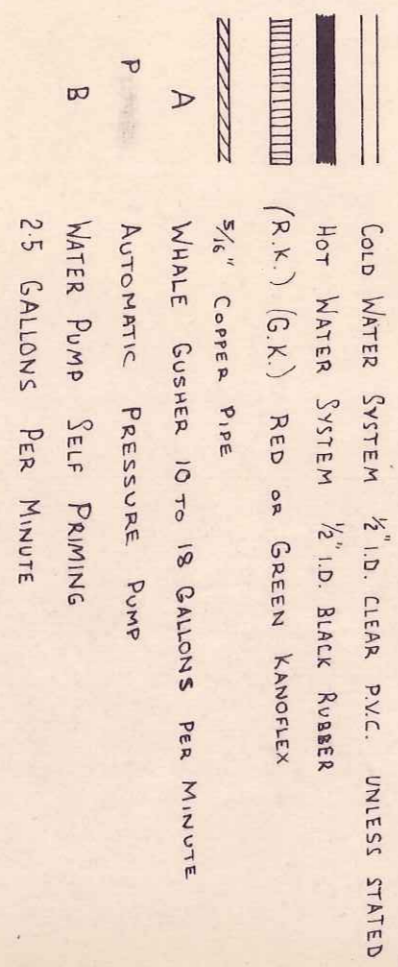 COLD WATER SYSTEM ½" I.D. CLEAR P.V.C. UNLESS STATED
HOT WATER SYSTEM ½" I.D. BLACK RUBBER
(R.K.) (G.K.) RED OR GREEN KANOFLEX
5/16" COPPER PIPE
A WHALE GUSHER 10 TO 18 GALLONS PER MINUTE
P AUTOMATIC PRESSURE PUMP
B WATER PUMP SELF PRIMING
2.5 GALLONS PER MINUTE